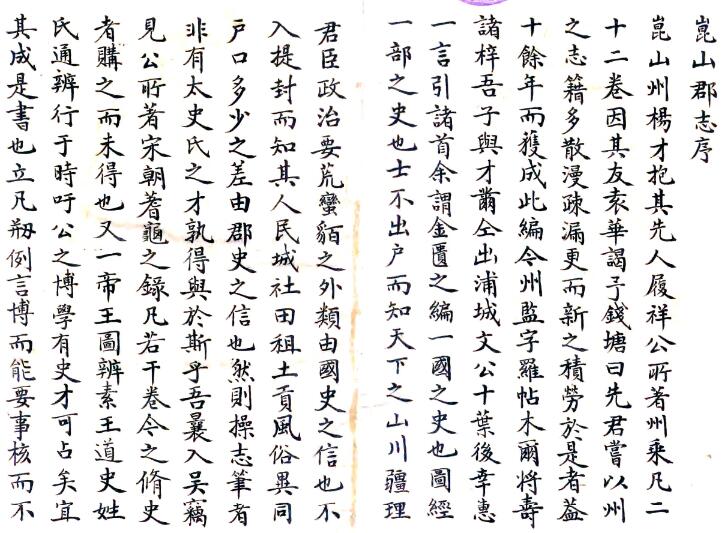 崑山郡志序
崑山州楊才抱其先人履祥公所著州乘凡二
十二卷因其友袁華謁予錢塘曰先君嘗以州
之志籍多散漫疎漏更而新之積勞於是者葢
十餘年而獲成此編令州監字羅帖木爾将壽
諸梓吾子與才萠仝出浦城文公十葉後幸惠
一言引諸首余謂金匱之編一國之史也圖經
一部之史也士不出戸而知天下之山川疆理
君臣政治要荒蠻貊之外類由國史之信也不
入提封而知其人民城社田租土貢風俗異同
戸口多少之差由郡史之信也然則操志筆者
非有太史氏之才孰得與於斯乎吾曩入吴竊
見公所著宋朝蓍龜之錄凡若干卷今之脩史
者購之而未得也又一帝王圖辨素王道史姓
氏通辨行于時吁公之博學有史才可占矣宜
其成是書也立凡刱例言博而能要事核而不